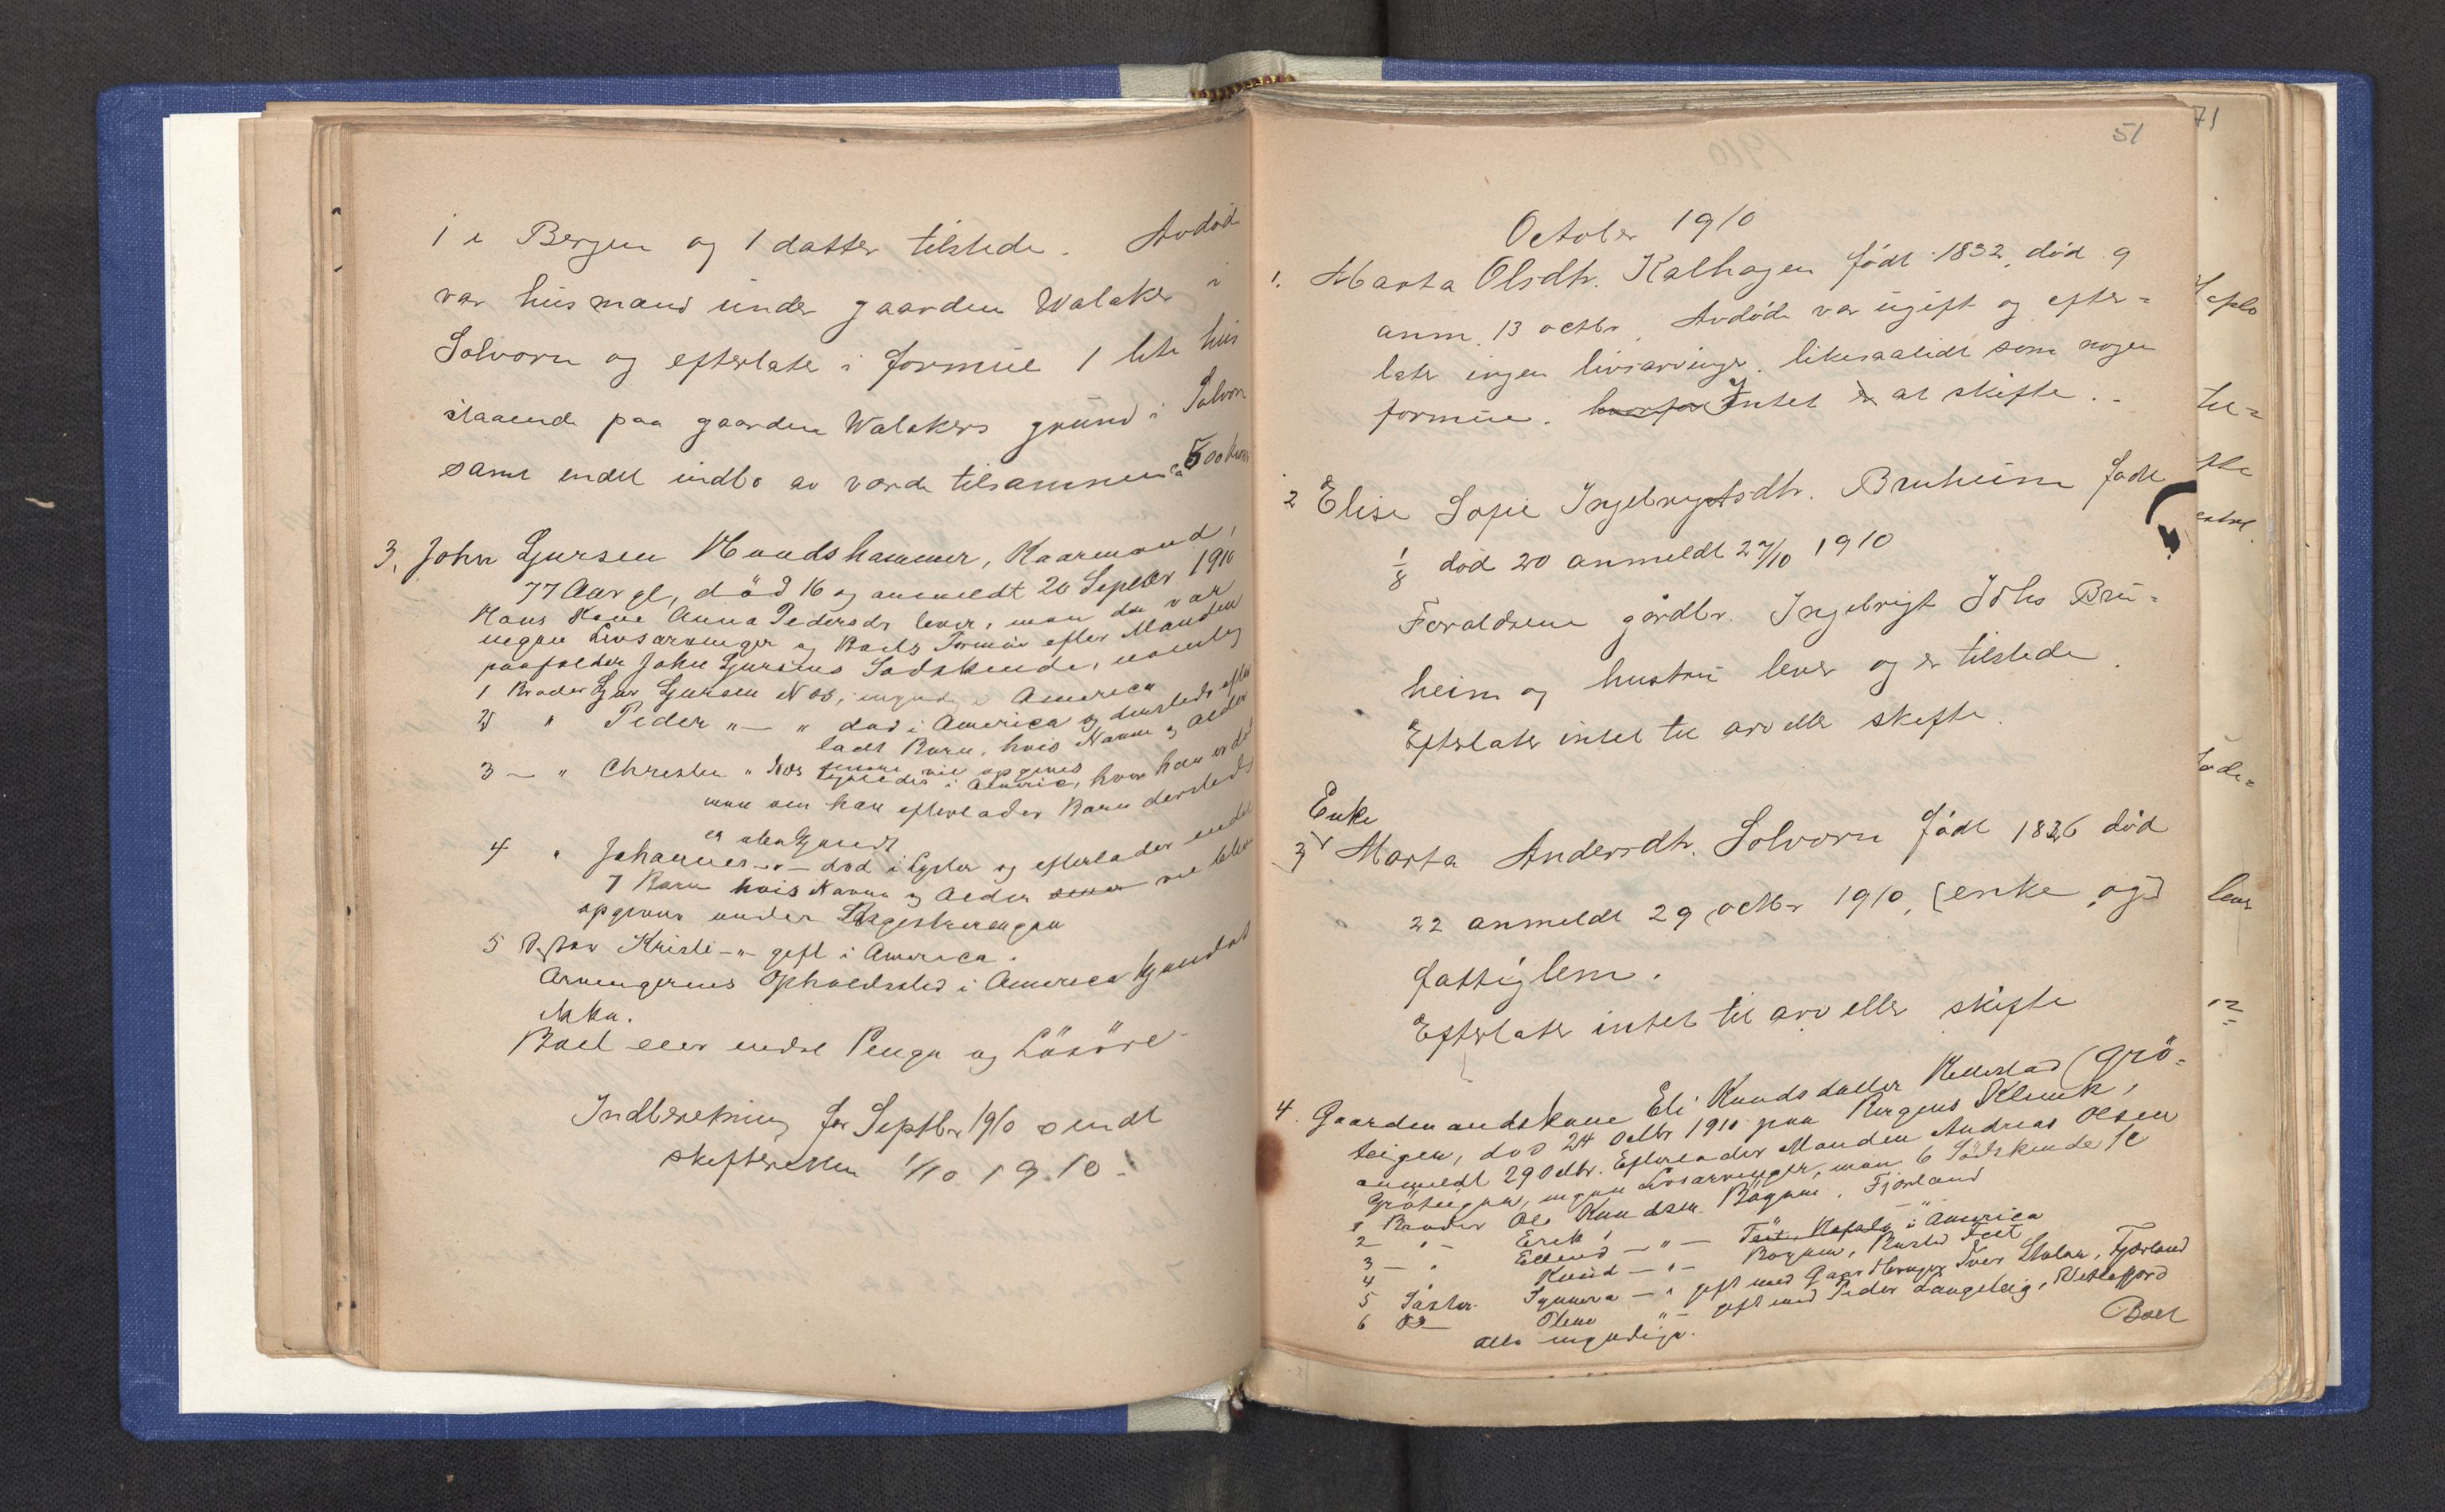 1 i Bergen og 1 datter tilstede. Avdøde
var husmand under gaarden Walaker i
Solvorn og efterlater i formue 1 lite hus
staaende paa gaarden Walakers grund i Solvorn
samt endel indbo av værde tilsammen ca 500 kroner
3. John Gjursen Hundshammer, Kaarmand,
77 Aar gl, död 16 og anmeldt 20 Septbr 1910
Hans Kone Anna Pedersdr lever, men da der var
ingen Livsarvinger og Boets Formue efter Manden
paafalder John Gjursens Sødskende, nemlig
1 Broder Gjur Gjursen Næs, myndig i America
2 " Peder " — " død i America og dersteds efter
ladt Barn, hvis Navne og Alder
senere vil opgives
3 — " Christen " Næs ligeledes i America, hvor han er død
men om han efterlader Barn dersteds
er ubekjendt
4 " Johannes — " — død i Lyster og efterlader endel
7 Barn hvis Navne og Alder senere vil blive
opgivne under
5 Søster Kristi — " — gift i America.
Arvingernes Opholdssted i America kjendes
ikke.
Boet eier endel Penge og Lösöre —
Indberetning for Septbr 1910 sendt
skifteretten 1/10 1910.
51
71
October 1910
1. Marta Olsdtr. Kalhagen født 1832, død 9
anm. 13 octbr. Avdøde var ugift og efter=
later ingen livsarvinger. likesaalidt som nogen
formue. hvorfor Intet er at skifte. -
2 Elise Sofie Ingebrigtsdtr. Bruheim født
1/8 død 20 anmeldt 27/10 1910
Forældrene gårdbr. Ingebrigt Johs Bru=
heim og hustru lever og er tilstede.
Efterlater intet til arv eller skifte.
Enke
3 Marta Andersdtr. Solvorn født 1826 død
22 anmeldt 29 octbr 1910, (enke og)
fattiglem.
Efterlater intet til arv eller skifte
4. Gaardmandskone Eli Knudsdatter Hellestad (Grö=
teigen, død 24 Octbr 1910 paa Bergens Klinik,
anmeldt 29 Octbr. Efterlader Manden Andreas Olsen
Gröteigen, ingen Livsarvinger, men 6 Södskende
1 Broder Ole Knudsen Böyum, Fjærland
2 " — Erik " — " —
3 — " Ellend — " — i America
4 " Knud — " — Böyum, Bosted
5 Søster Synneva — " gift med Gaardbruger Iver Stalen, Fjærland
6 Do Oline " — gift med Peder Langeteig, Vetlefjord
alle myndige.
Boet